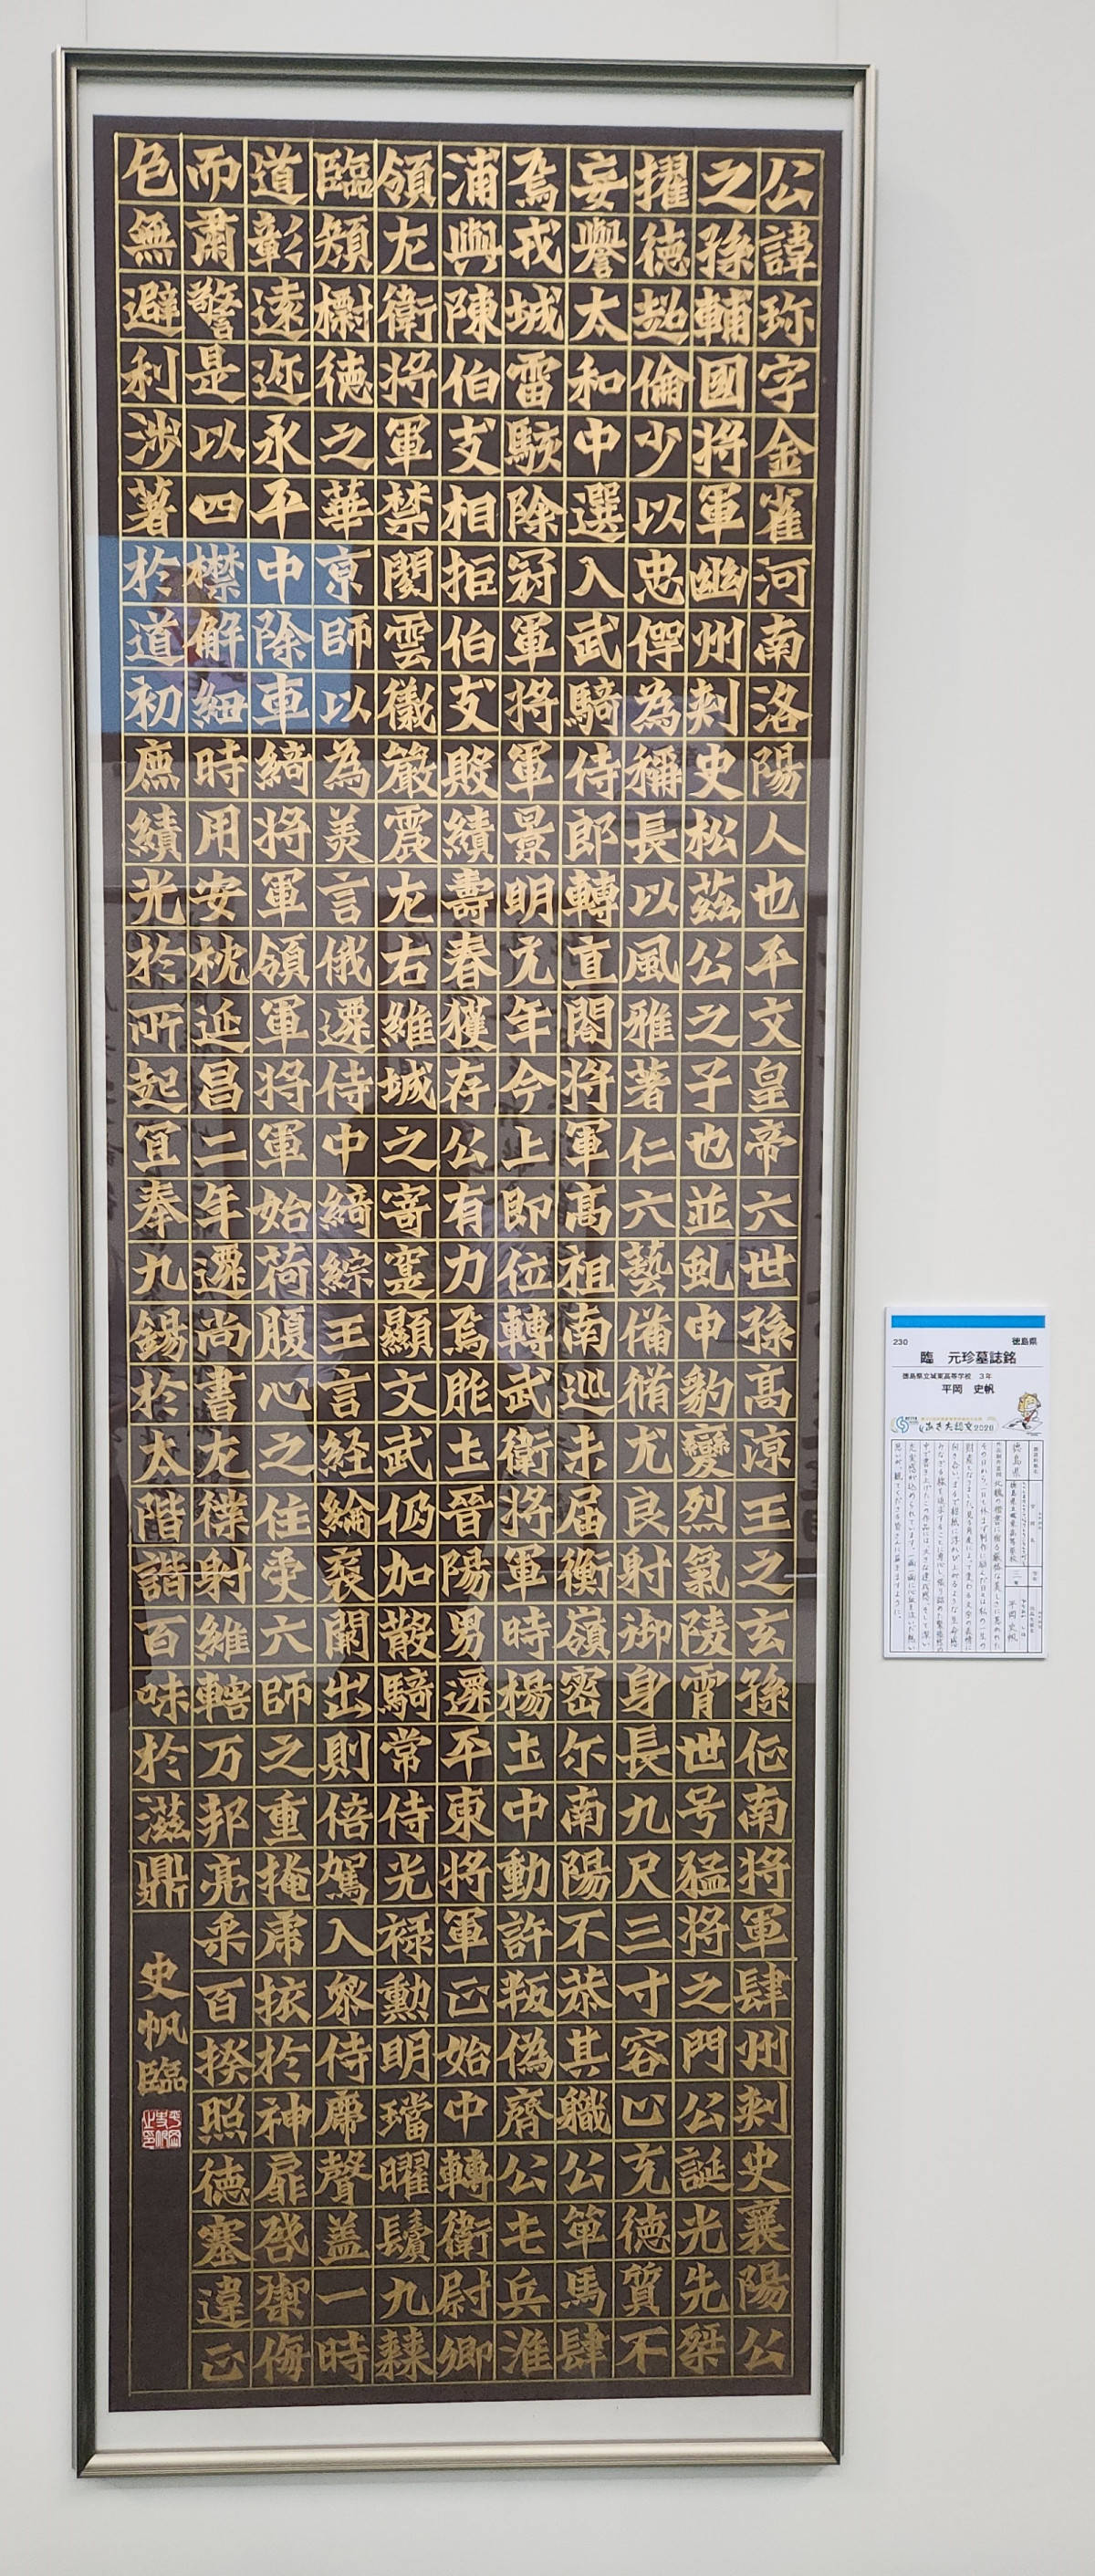 公諱珎字金雀河南洛陽人也平文皇帝六世孫高涼王之玄孫征南将軍肆州刾史襄陽公
之孫輔國将軍幽州刾史松茲公之子也並虬申豹變烈氣陵霄世号猛将之門公誕光先桀
擢德超倫少以忠倬為稱長以風雅著仁六藝備脩尤良射御身長九尺三寸容皃充德質不
妄譽太和中選入武騎侍郎轉直閤将軍高祖南巡未届衡嶺密尓南陽不恭其職公簞馬肆
焉戎城雷駭除冠軍将軍景明元年今上即位轉武衛将軍時楊土中動許叛偽齊公屯兵淮
浦與陳伯支相拒伯支敗績壽春獲存公有力焉胙土晉陽男遷平東将軍正始中轉衛尉卿
領左衛将軍禁闕雲儀嚴震左右維城之寄寔顯文武仍加散騎常侍光禄勳明璫曜鬢九棘
臨槲德之華京師以為美言俄遷侍中綺綜王言経綸袞闈出則倍駕入叅侍席聲盖一時
道彰遠迩永平中除車綺将軍領軍将軍始荷腹心之任受六師之重掩席於神扉啓禦侮
而肅警是以四襟解細時用安枕延昌二年遷尚書左僕射維轄万邦亮采百揆照德塞違正
色無避利涉著於道初庶績光於所起宜奉九錫於太階諧百味於滋鼎
史帆臨
230 徳島県
臨　元珍墓誌銘
徳島県立城東高等学校　3年
平岡　史帆
あきた総文2026